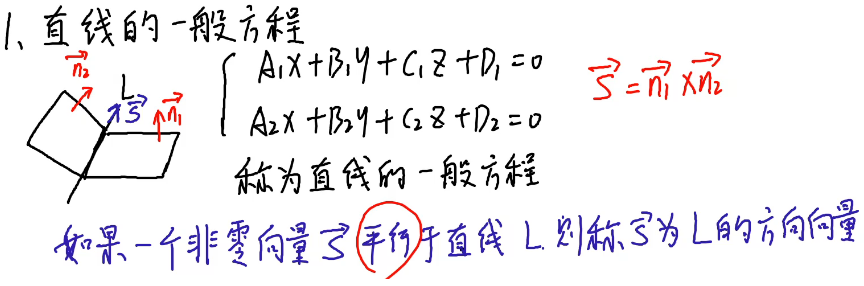 1、直线的一般方程
A₁x+B₁y+C₁z+D₁=0
A₂x+B₂y+C₂z+D₂=0
s⃗=n₁⃗×n₂⃗
n₂⃗
L
s⃗
n₁⃗
称为直线的一般方程
如果一个非零向量s⃗平行于直线L.则称s⃗为L的方向向量